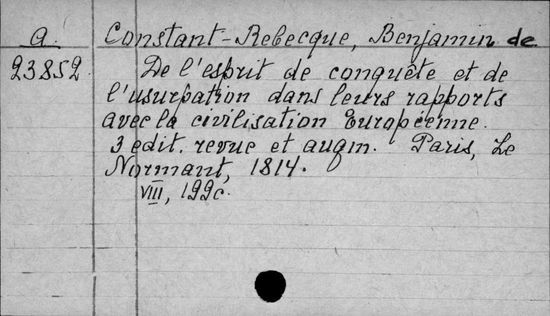 a. Constant-Rebecque, Benjamin de
23852. De l'esprit de conquête et de
l'usurpation dans leurs rapports
avec la civilisation Européenne.
3 edit. revue et augm. Paris, Le
Normant, 1814.
VIII, 199c.